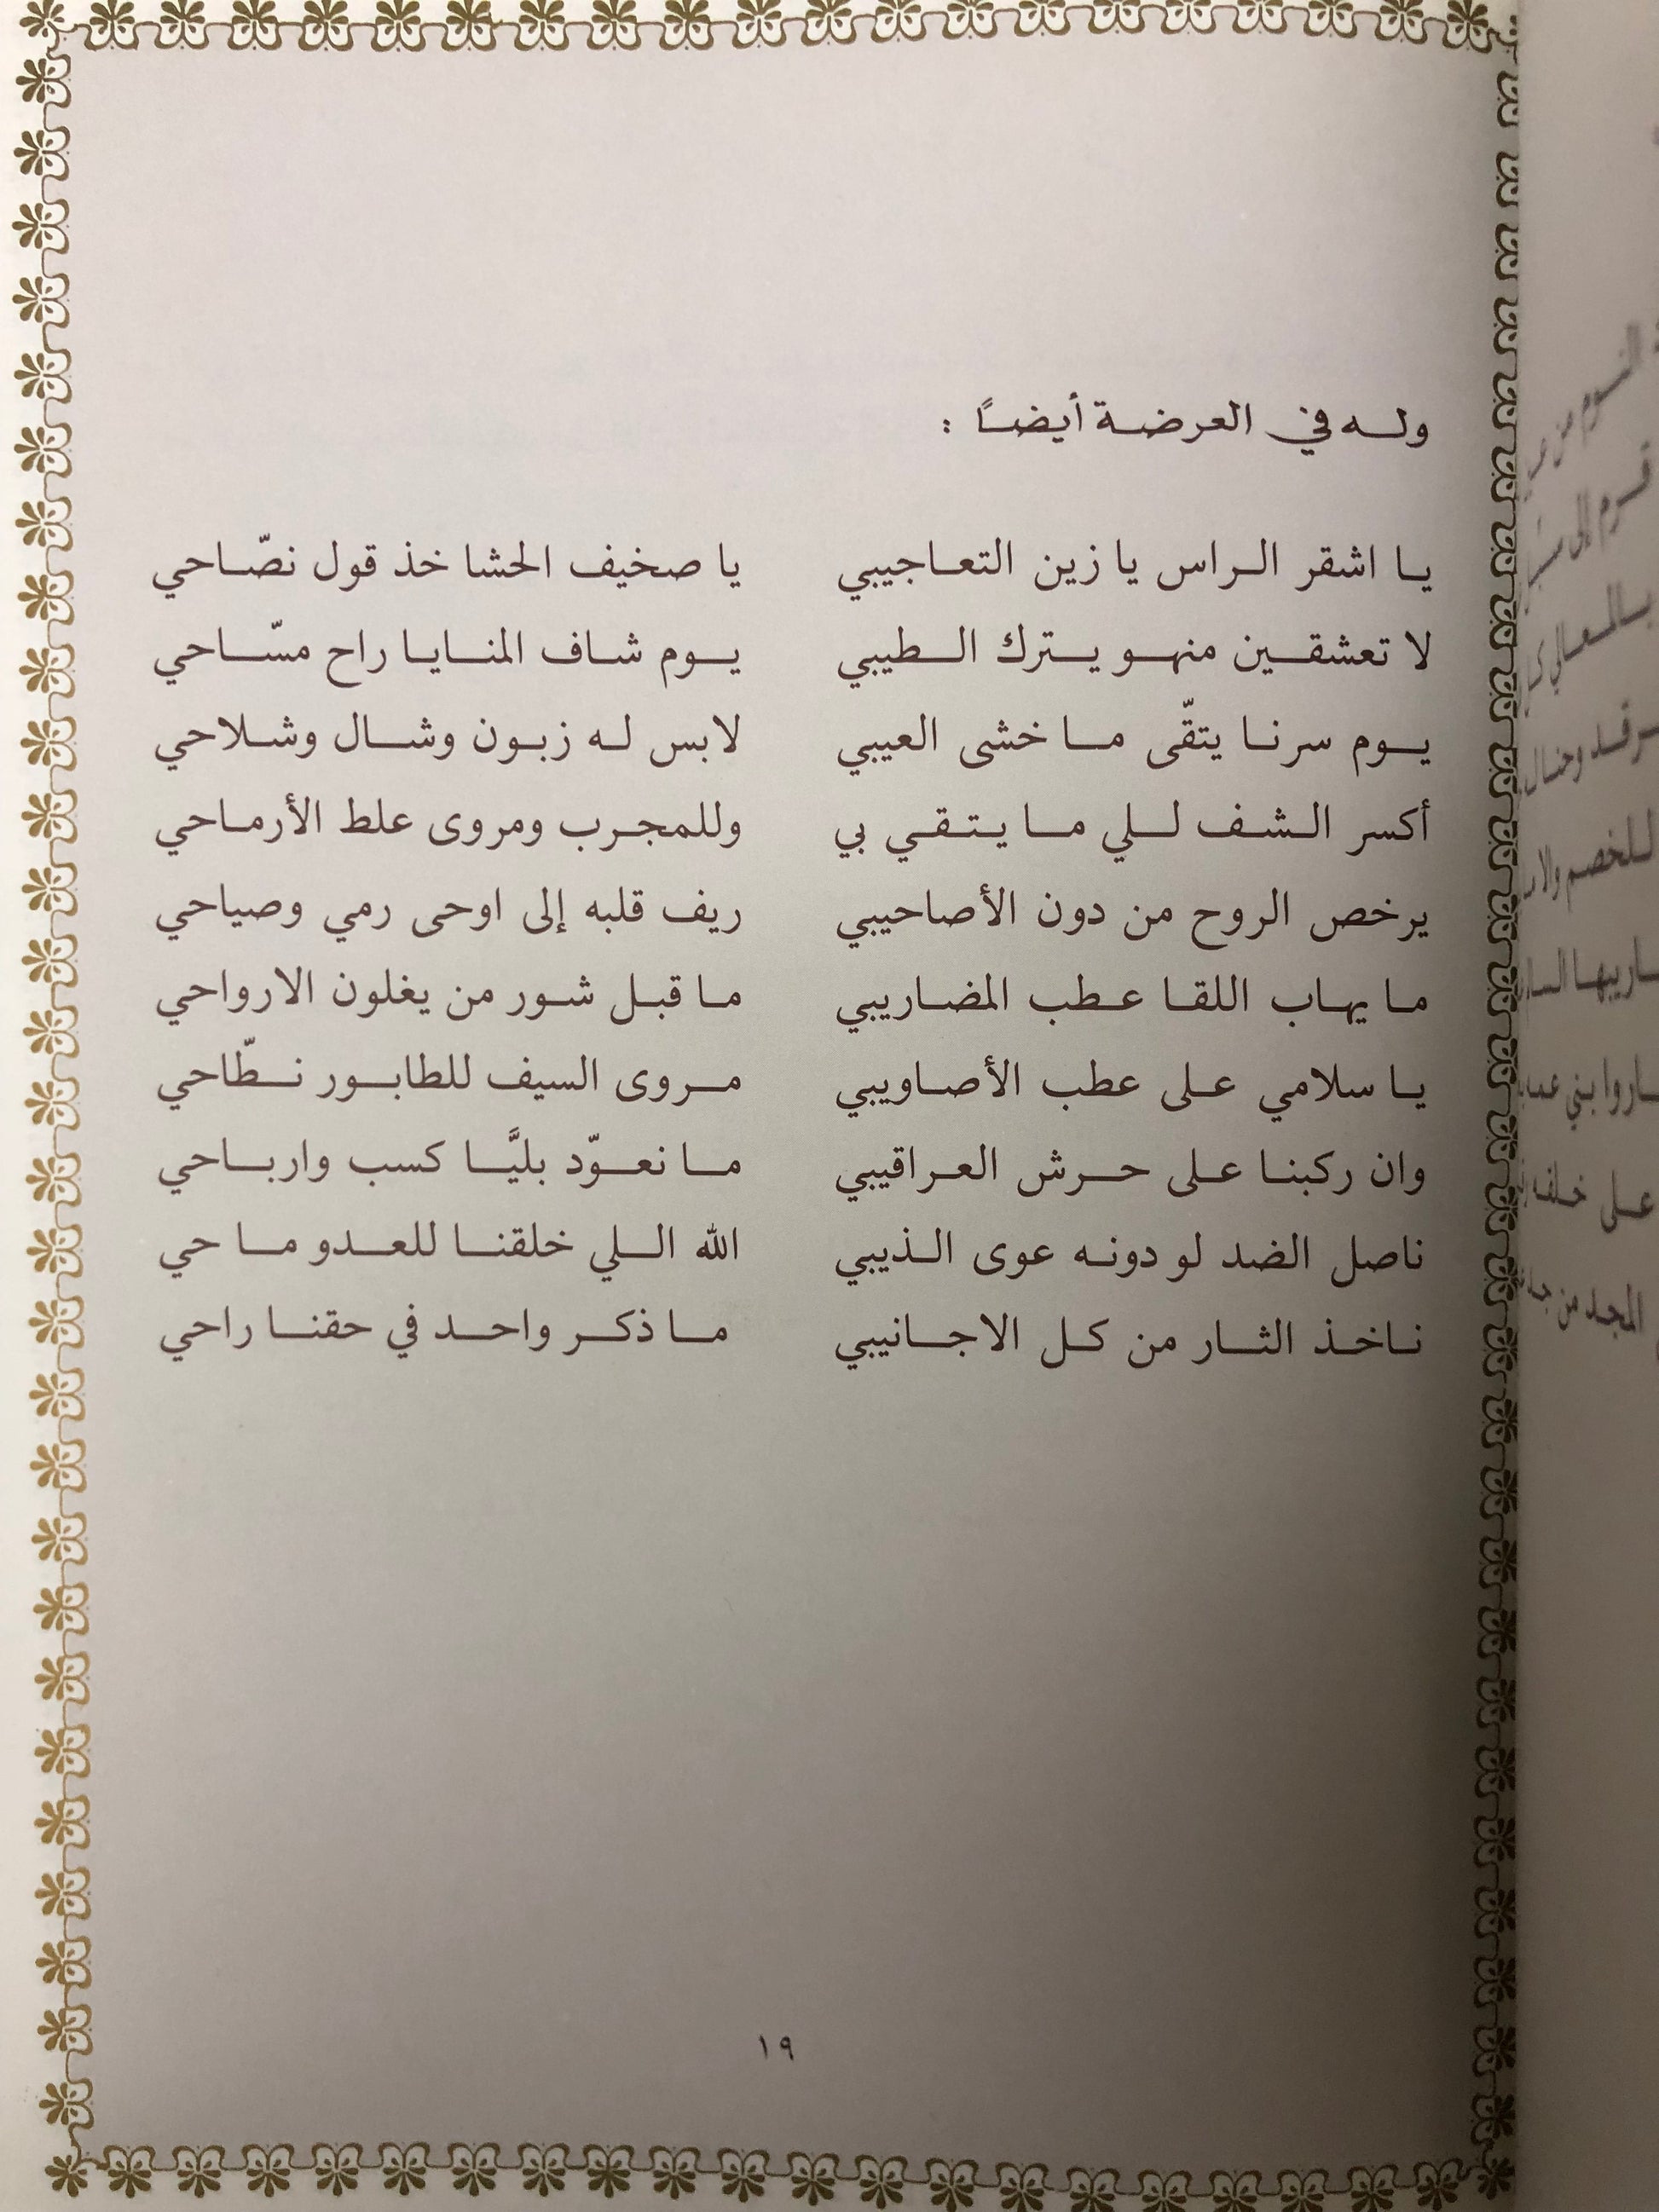 وله في العرضة أيضاً :
يا اشقر الراس يا زين التعاجيبي يا صخيف الحشا خذ قول نصّاحي
لا تعشقين منهو يترك الطيبي يوم شاف المنايا راح مسّاحي
يوم سرنا يتقّى ما خشى العيبي لابس له زبون وشال وشلاحي
أكسر الشف للي ما يتقي بي وللمجرب ومروى علط الأرماحي
يرخص الروح من دون الأصاحيبي ريف قلبه إلى اوحى رمي وصياحي
ما يهاب اللقا عطب المضاريبي ما قبل شور من يغلون الارواحي
يا سلامي على عطب الأصاويبي مروى السيف للطابور نطّاحي
وان ركبنا على حرش العراقيبي ما نعوّد بليَّا كسب وارباحي
ناصل الضد لو دونه عوى الذيبي الله اللي خلقنا للعدو ماحي
ناخذ الثار من كل الاجانيبي ما ذكر واحد في حقنا راحي
١٩